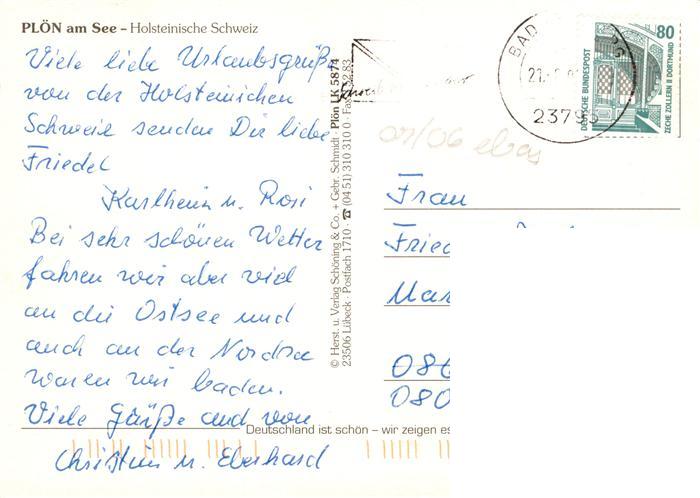 PLÖN am See – Holsteinische Schweiz
Viele liebe Urlaubsgrüße
von der Holsteinischen
Schweiz senden Dir liebe
Friedel
Karlheinz u. Rosi
Bei sehr schönen Wetter
fahren wir aber viel
an die Ostsee und
auch an der Nordsee
waren wir baden.
Viele Grüße auch von
Christin u. Eberhard
© Herst. u. Verlag Schöning & Co. + Gebr. Schmidt · Plön LK 5874
23506 Lübeck · Postfach 1710 · ☎ (04 51) 310 310 0 · Fax
Deutschland ist schön – wir zeigen es
BAD
21.
23795
80
DEUTSCHE BUNDESPOST
ZECHE ZOLLERN II DORTMUND
07/06 ebas
Frau
Frie
Mar
086
080